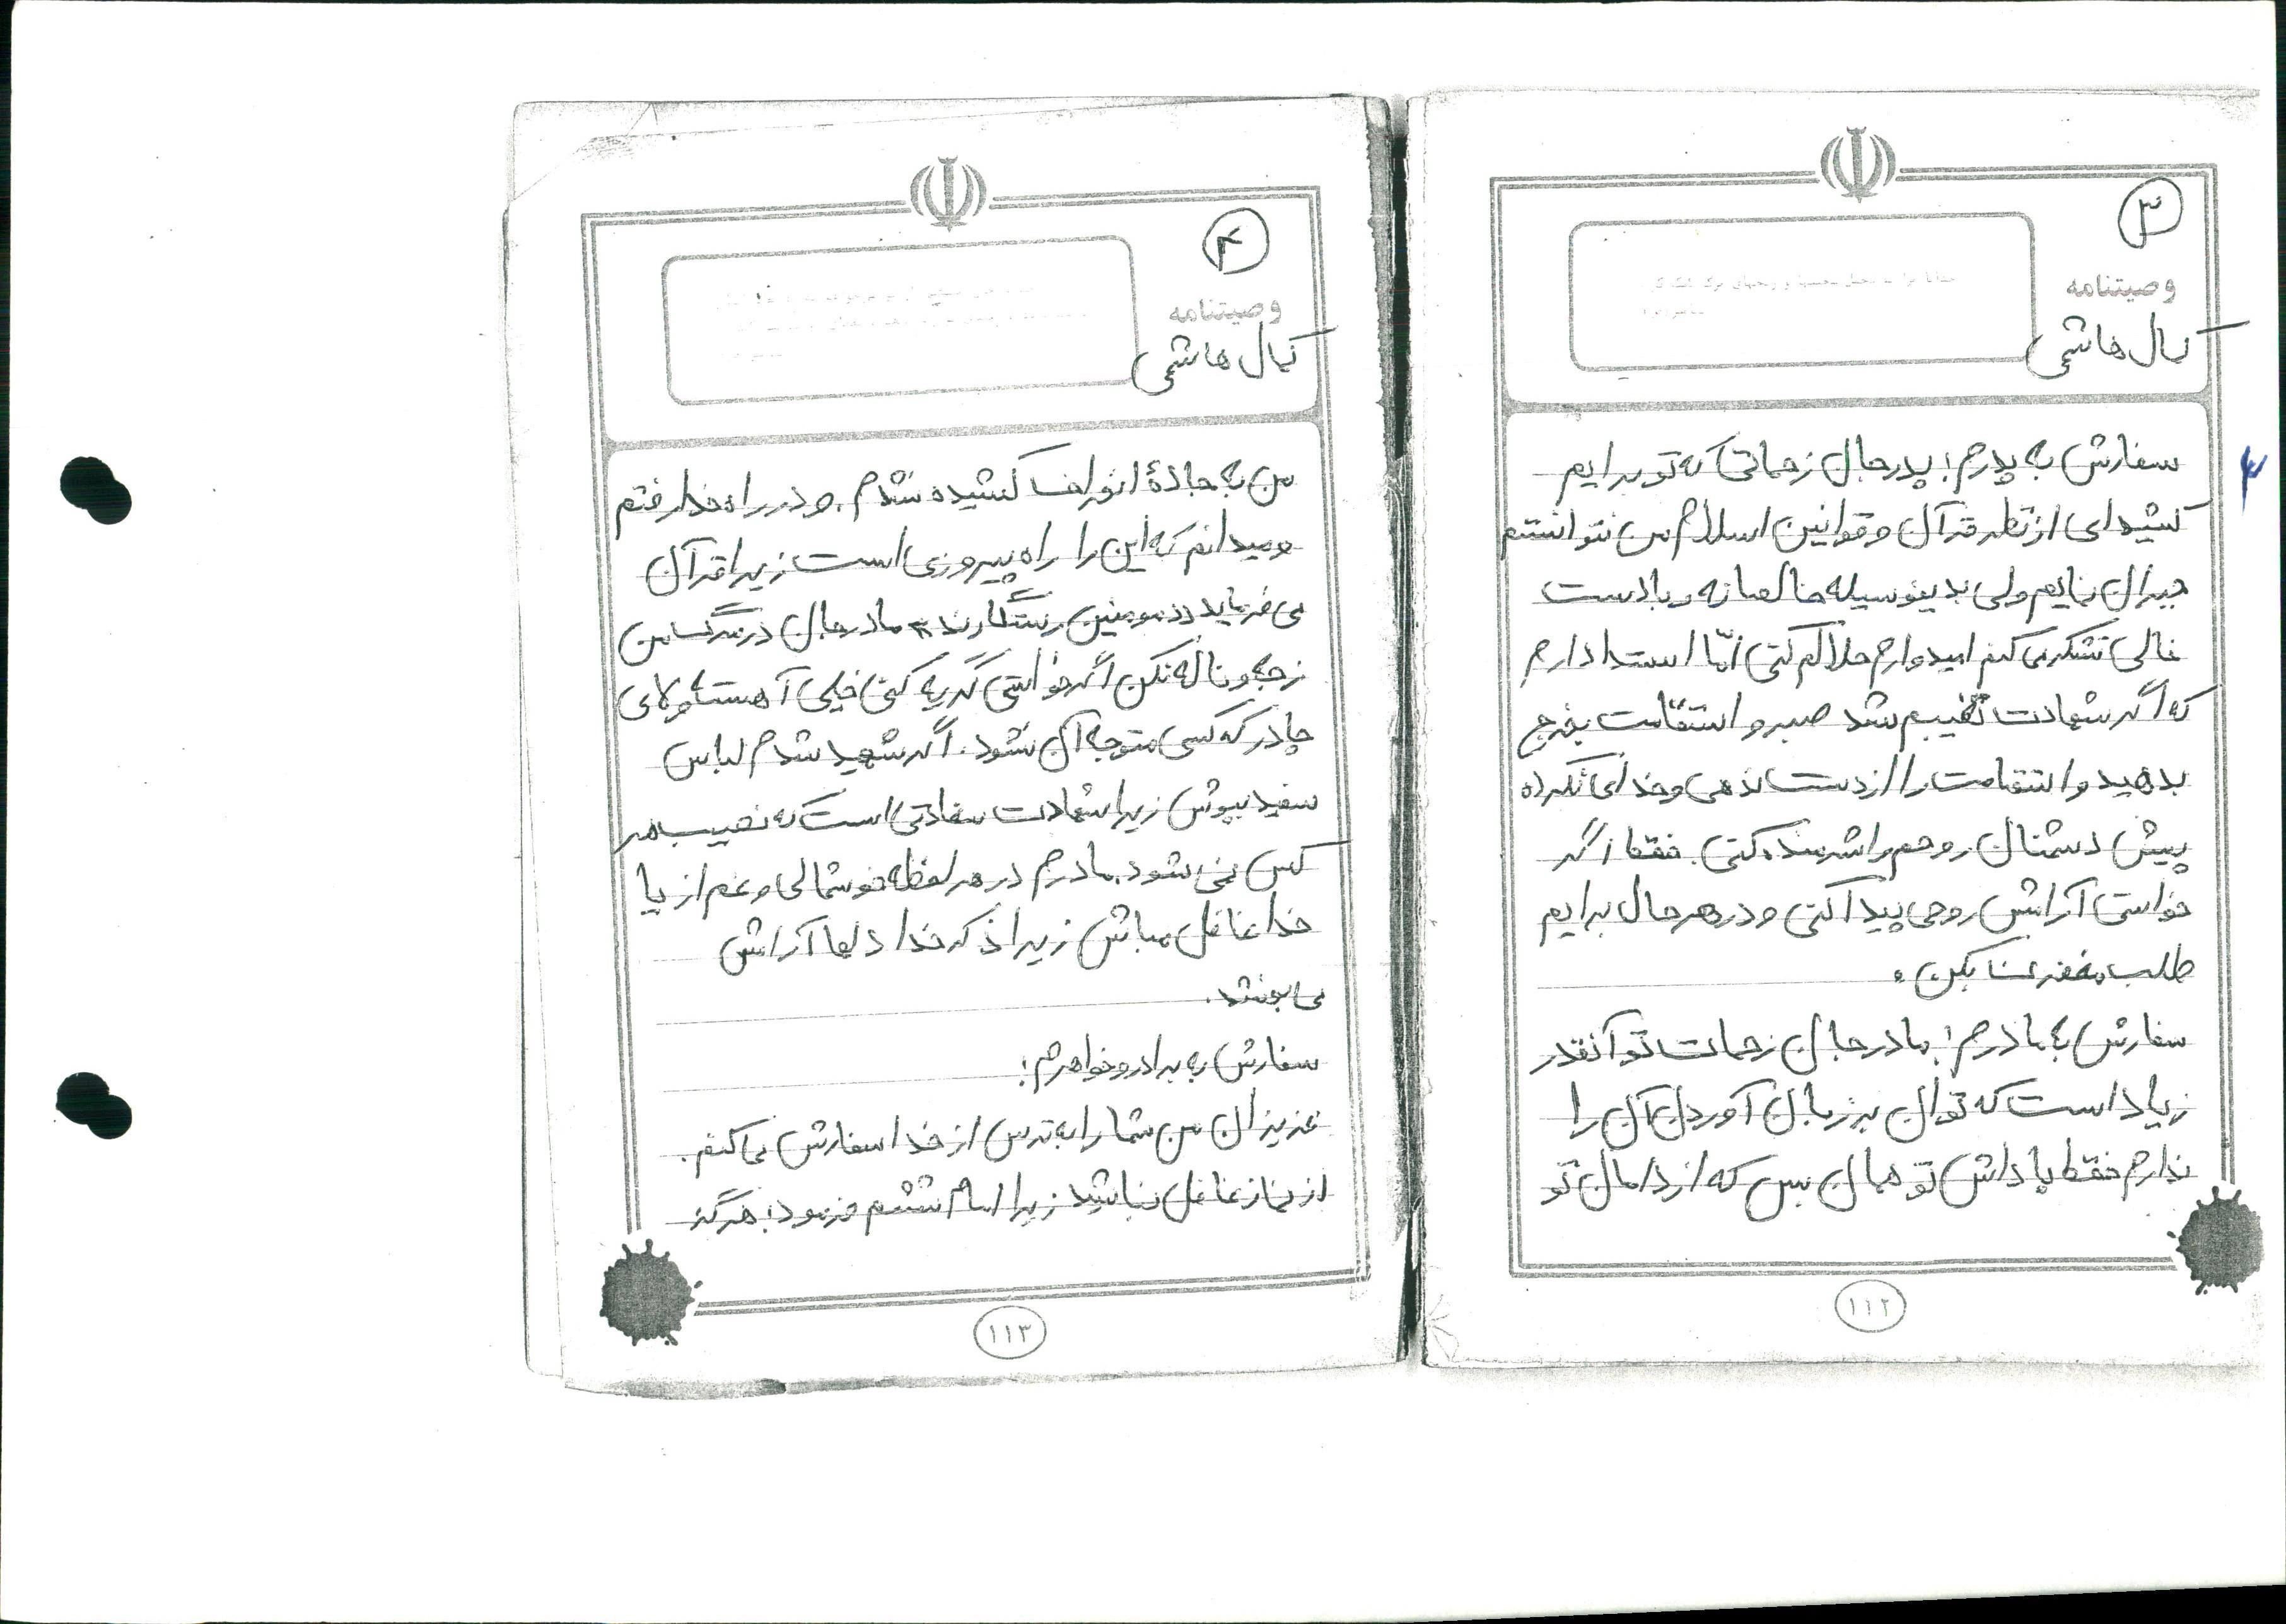 ۳
وصیتنامه
کمال هاشمی
۳
سفارش به پدرم؛ پدر جان زحماتی که تو برایم
کشیده‌ای از نظر قرآن و قوانین اسلام من نتوانستم
جبران نمایم ولی بدینوسیله خالصانه و با دست
خالی تشکر می‌کنم امیدوارم حلالم کنی امّا استدا دارم
که اگر شهادت نصیبم شد صبر و استقامت بخرج
بدهید و استقامت را از دست ندهی و خدای نکرده
پیش دشمنان روحم را شرمنده کنی. فقط اگر
خواستی آرامش روحی پیدا کنی و در هر حال برایم
طلب مغفرت بکن.
سفارش به مادرم؛ مادر جان زحمات تو آنقدر
زیاد است که توان بر زبان آوردن آن را
ندارم فقط پاداش تو همان بس که از دامان تو
۱۱۲
۴
وصیتنامه
کمال هاشمی
من به جادهٔ انحراف کشیده نشدم. و در راه خدا رفتم
و میدانم که این را راه پیروزی است زیرا قرآن
می‌فرماید «مومنین رستگارند» مادر جان در مرگ من
زجه و ناله نکن اگر خواستی گریه کنی خیلی آهسته و لای
چادر که کسی متوجه آن نشود. اگر شهید شدم لباس
سفید بپوش زیرا شهادت سعادتی است که نصیب هر
کس نمی‌شود. مادرم در هر لحظه خوشحالی و غم از یا
خدا غافل مباش زیرا ذکر خدا دلها آرامش
می‌بخشد.
سفارش به برادر و خواهرم؛
عزیزان من شما را به ترس از خدا سفارش می‌کنم.
از نماز غافل نباشید زیرا امام ششم فرمود؛ هرگز
۱۱۳